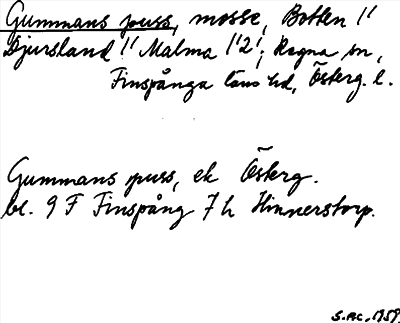 Gummans puss, mosse, Botten !!
Djursland !! Malma !!2!; Regna sn,
Finspånga läns hd, Österg. l.
Gummans puss, ek Österg.
bl. 9 F Finspång 7 h Hinnerstorp.
1959